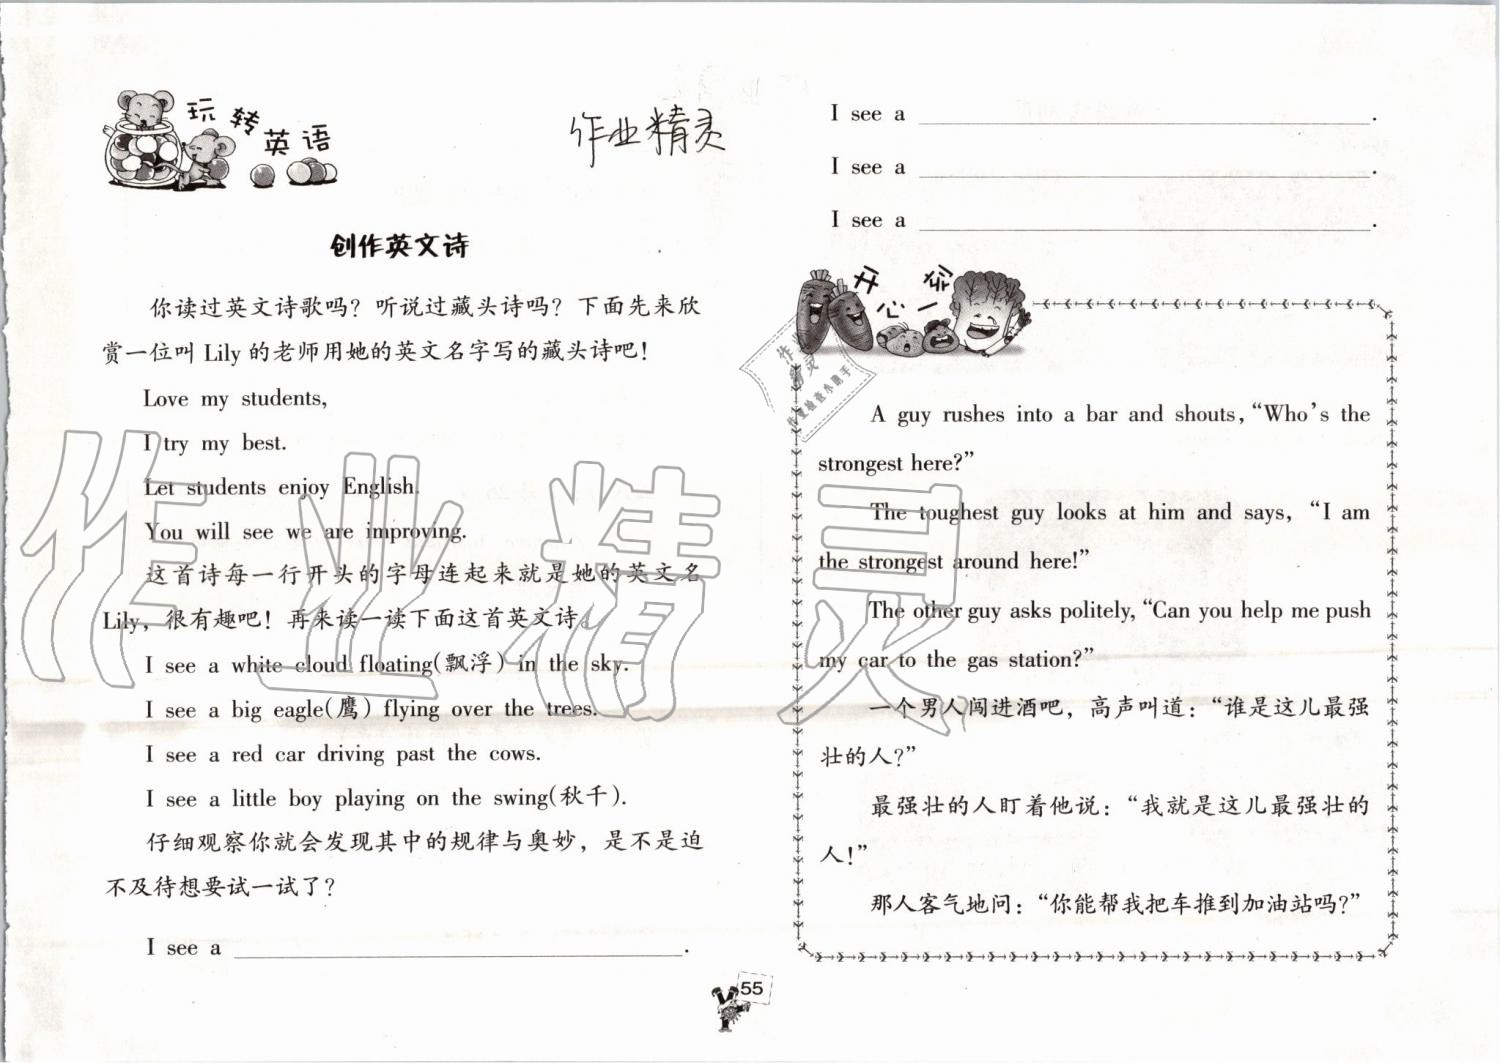 玩转英语
作业精灵
创作英文诗
你读过英文诗歌吗？听说过藏头诗吗？下面先来欣
赏一位叫 Lily 的老师用她的英文名字写的藏头诗吧！
Love my students,
I try my best.
Let students enjoy English.
You will see we are improving.
这首诗每一行开头的字母连起来就是她的英文名
Lily，很有趣吧！再来读一读下面这首英文诗。
I see a white cloud floating(飘浮) in the sky.
I see a big eagle(鹰) flying over the trees.
I see a red car driving past the cows.
I see a little boy playing on the swing(秋千).
仔细观察你就会发现其中的规律与奥妙，是不是迫
不及待想要试一试了？
I see a ______.
I see a ______.
I see a ______.
I see a ______.
开心一家
A guy rushes into a bar and shouts, “Who’s the
strongest here?”
The toughest guy looks at him and says, “I am
the strongest around here!”
The other guy asks politely, “Can you help me push
my car to the gas station?”
一个男人闯进酒吧，高声叫道：“谁是这儿最强
壮的人？”
最强壮的人盯着他说：“我就是这儿最强壮的
人！”
那人客气地问：“你能帮我把车推到加油站吗？”
55
作业精灵